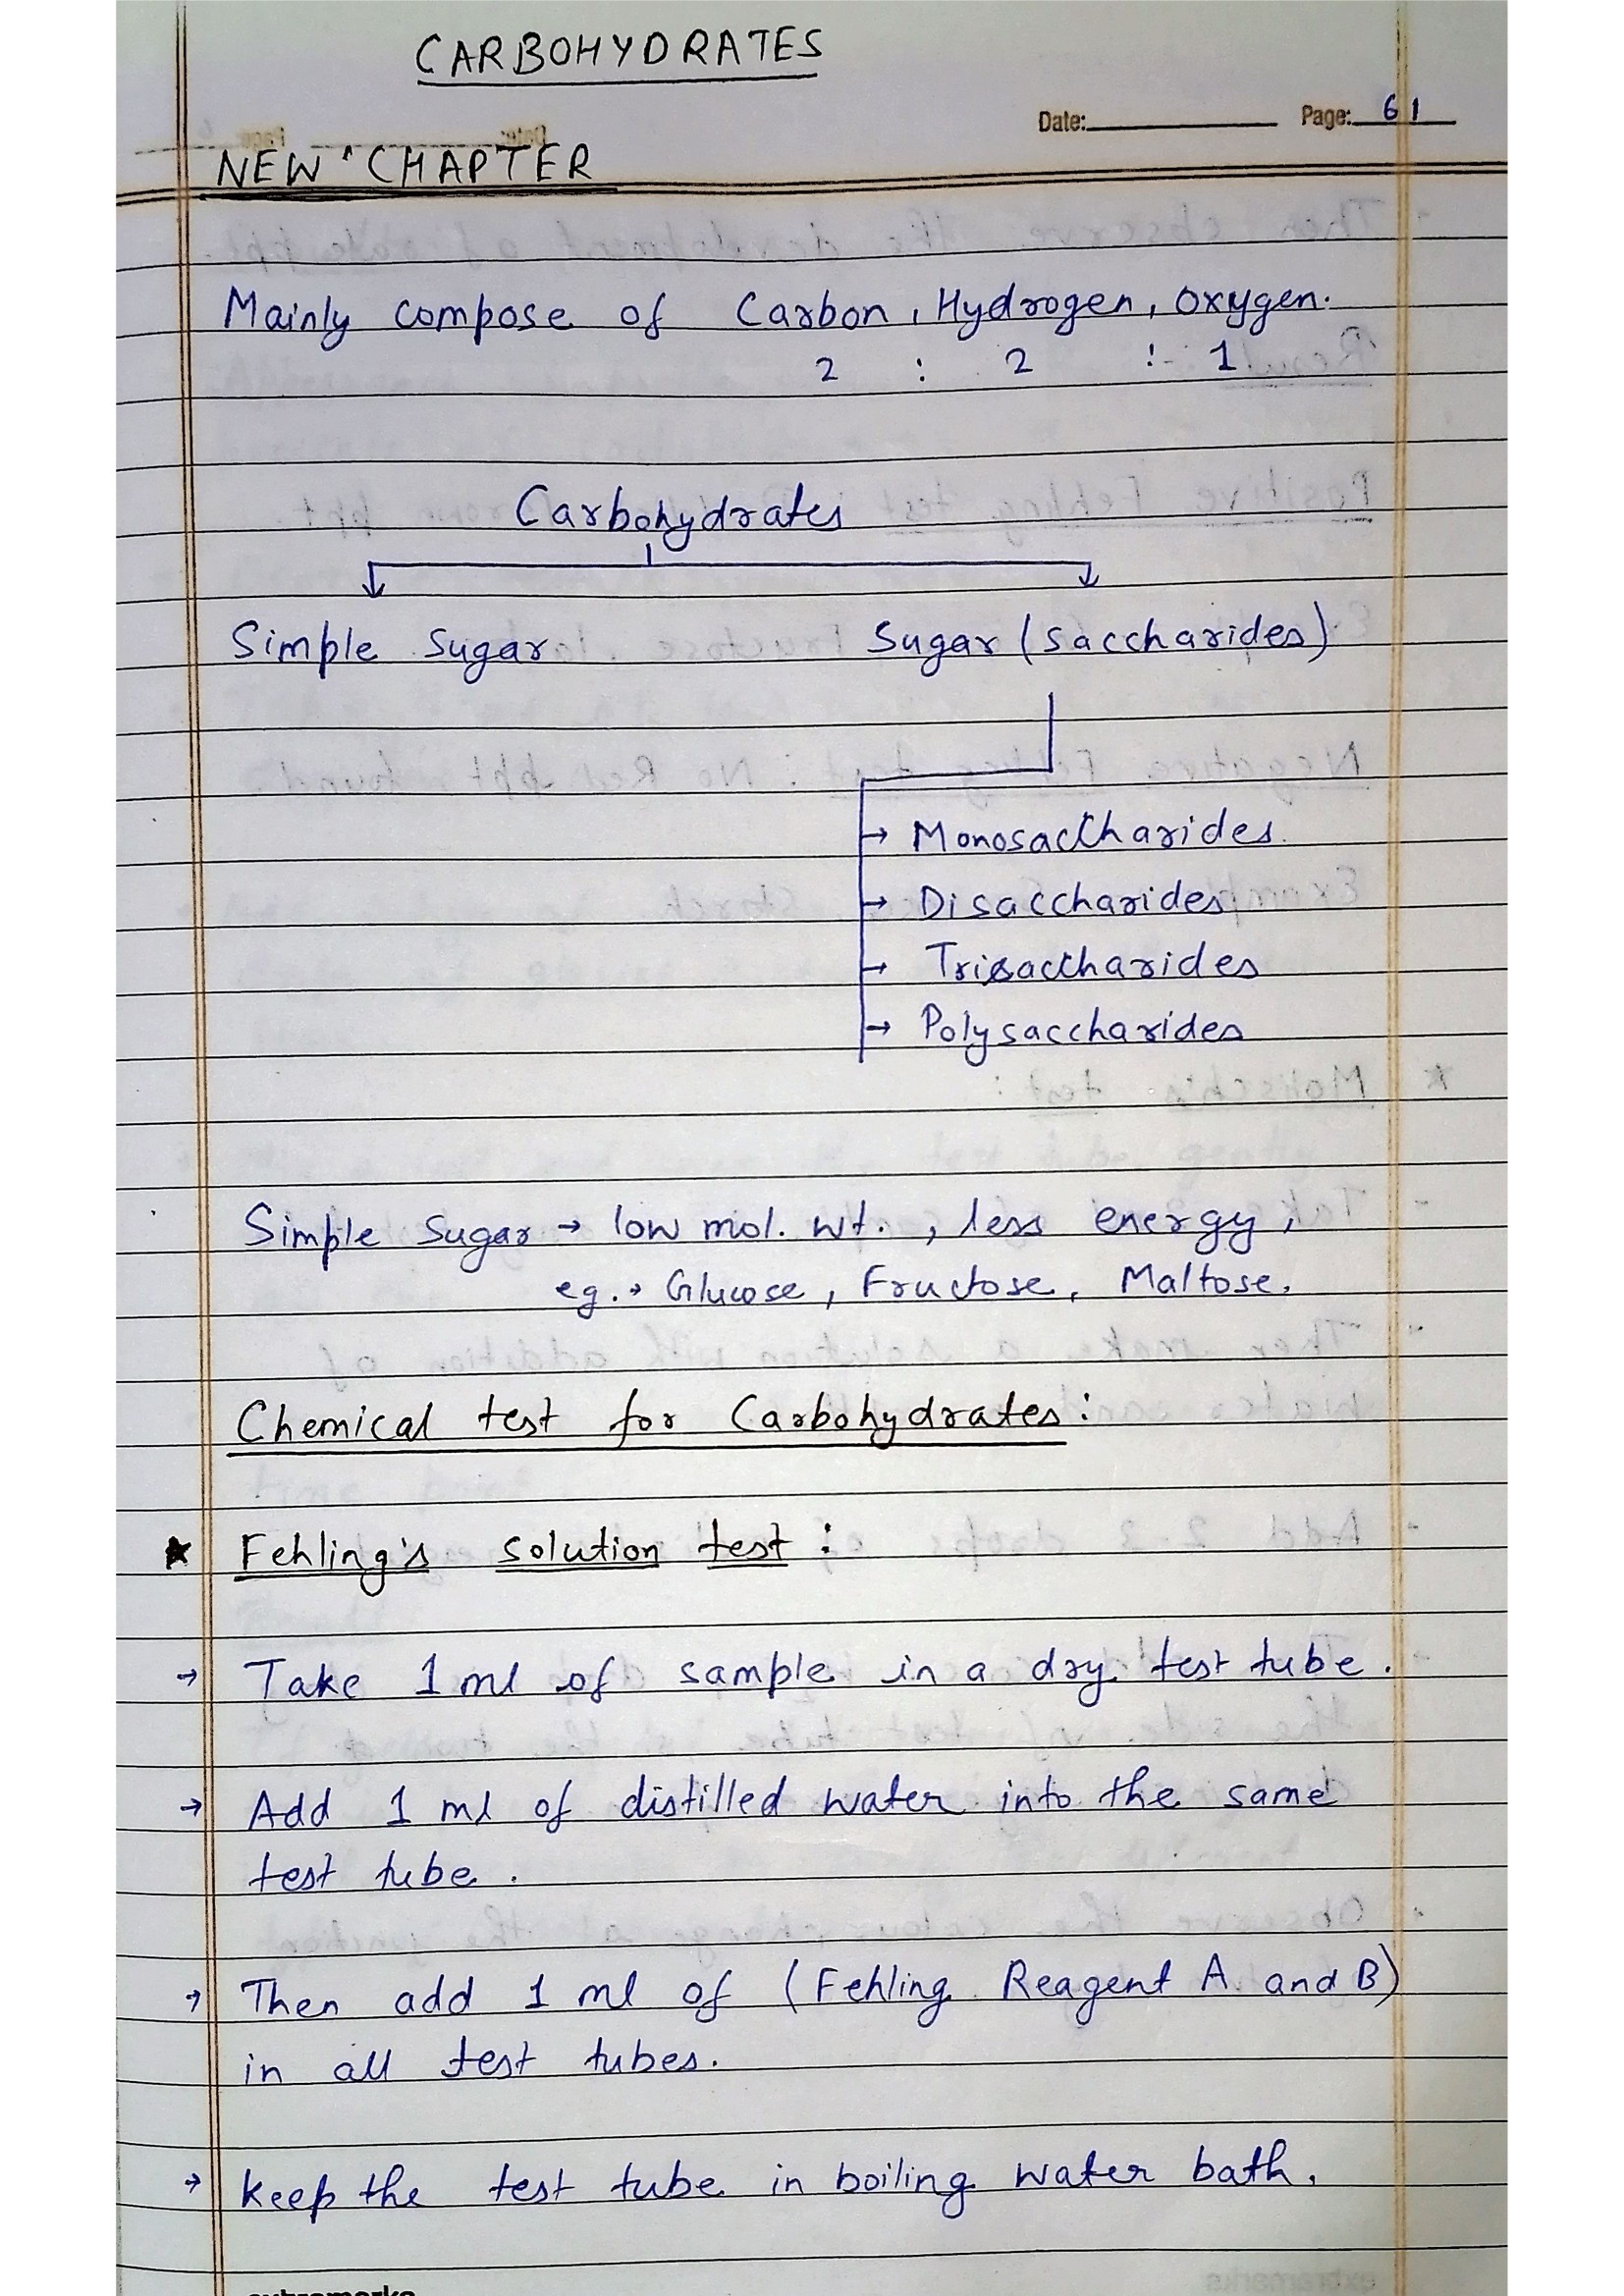 CARBOHYDRATES
Date: Page: 61
NEW CHAPTER
Mainly compose of Carbon, Hydrogen, Oxygen.
2 : 2 : 1
Carbohydrates
Simple Sugar Sugar (Saccharides)
→ Monosaccharides
→ Disaccharides
→ Trisaccharides
→ Polysaccharides
Simple Sugar → low mol. wt. , less energy,
eg. → Glucose, Fructose, Maltose.
Chemical test for Carbohydrates:
★ Fehling's solution test :
→ Take 1 ml of sample in a dry test tube.
→ Add 1 ml of distilled water into the same
test tube.
→ Then add 1 ml of (Fehling Reagent A and B)
in all test tubes.
→ keep the test tube in boiling water bath.